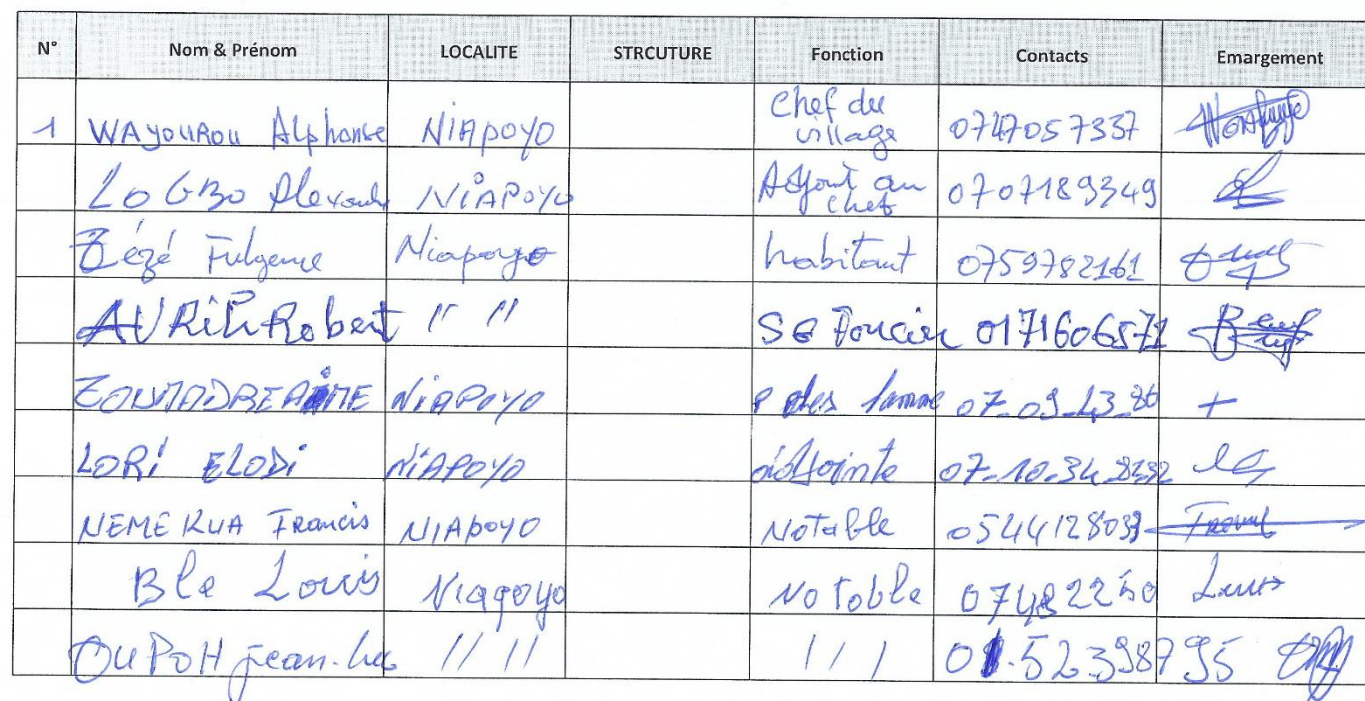 N° Nom & Prénom LOCALITE STRCUTURE Fonction Contacts Emargement
1 WAYOUROU Alphonse NIAPOYO Chef du village 0747057337
LOGBO Alexandre NIAPOYO Adjoint au chef 0707189349
Zézé Fulgence Niapoyo habitant 0759782161
AVRIL Robert '' '' SG Foncier 0171606571
NIAPOYO P des 07-09-43-86 +
LORI ELODI NIAPOYO adjointe 07-10-34
NEME KUA Francis NIAPOYO Notable
Ble Louis Niapoyo Notable
OUPOH Jean-Luc // // / / / 01.52398795